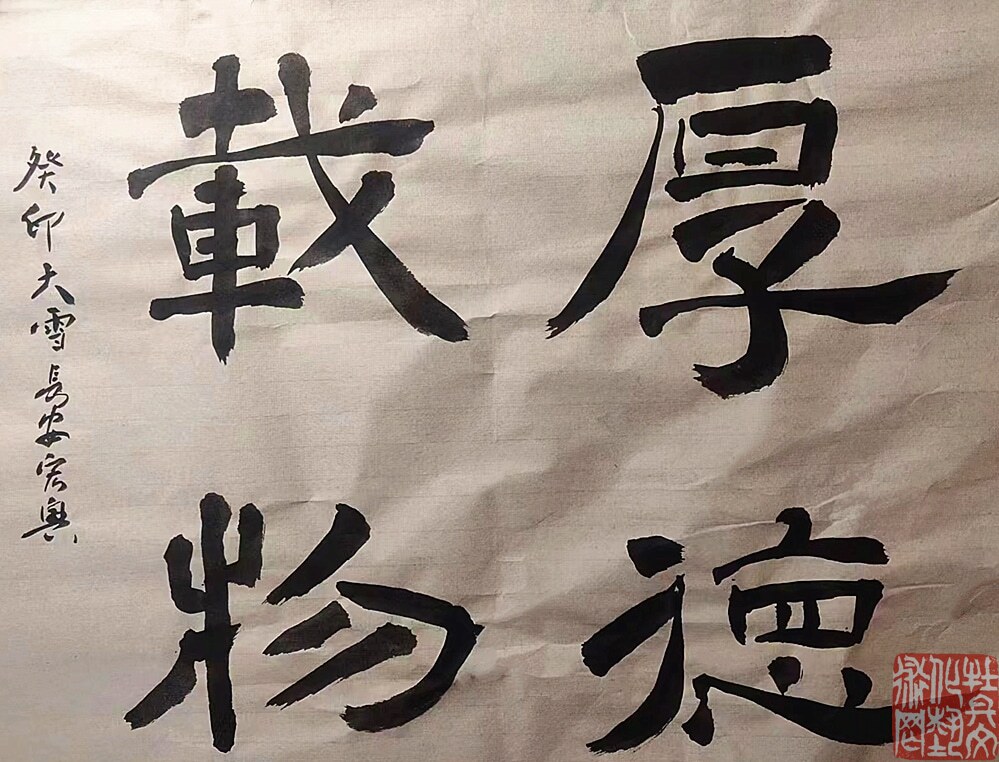 厚德
載物
癸卯大雪長安宏興